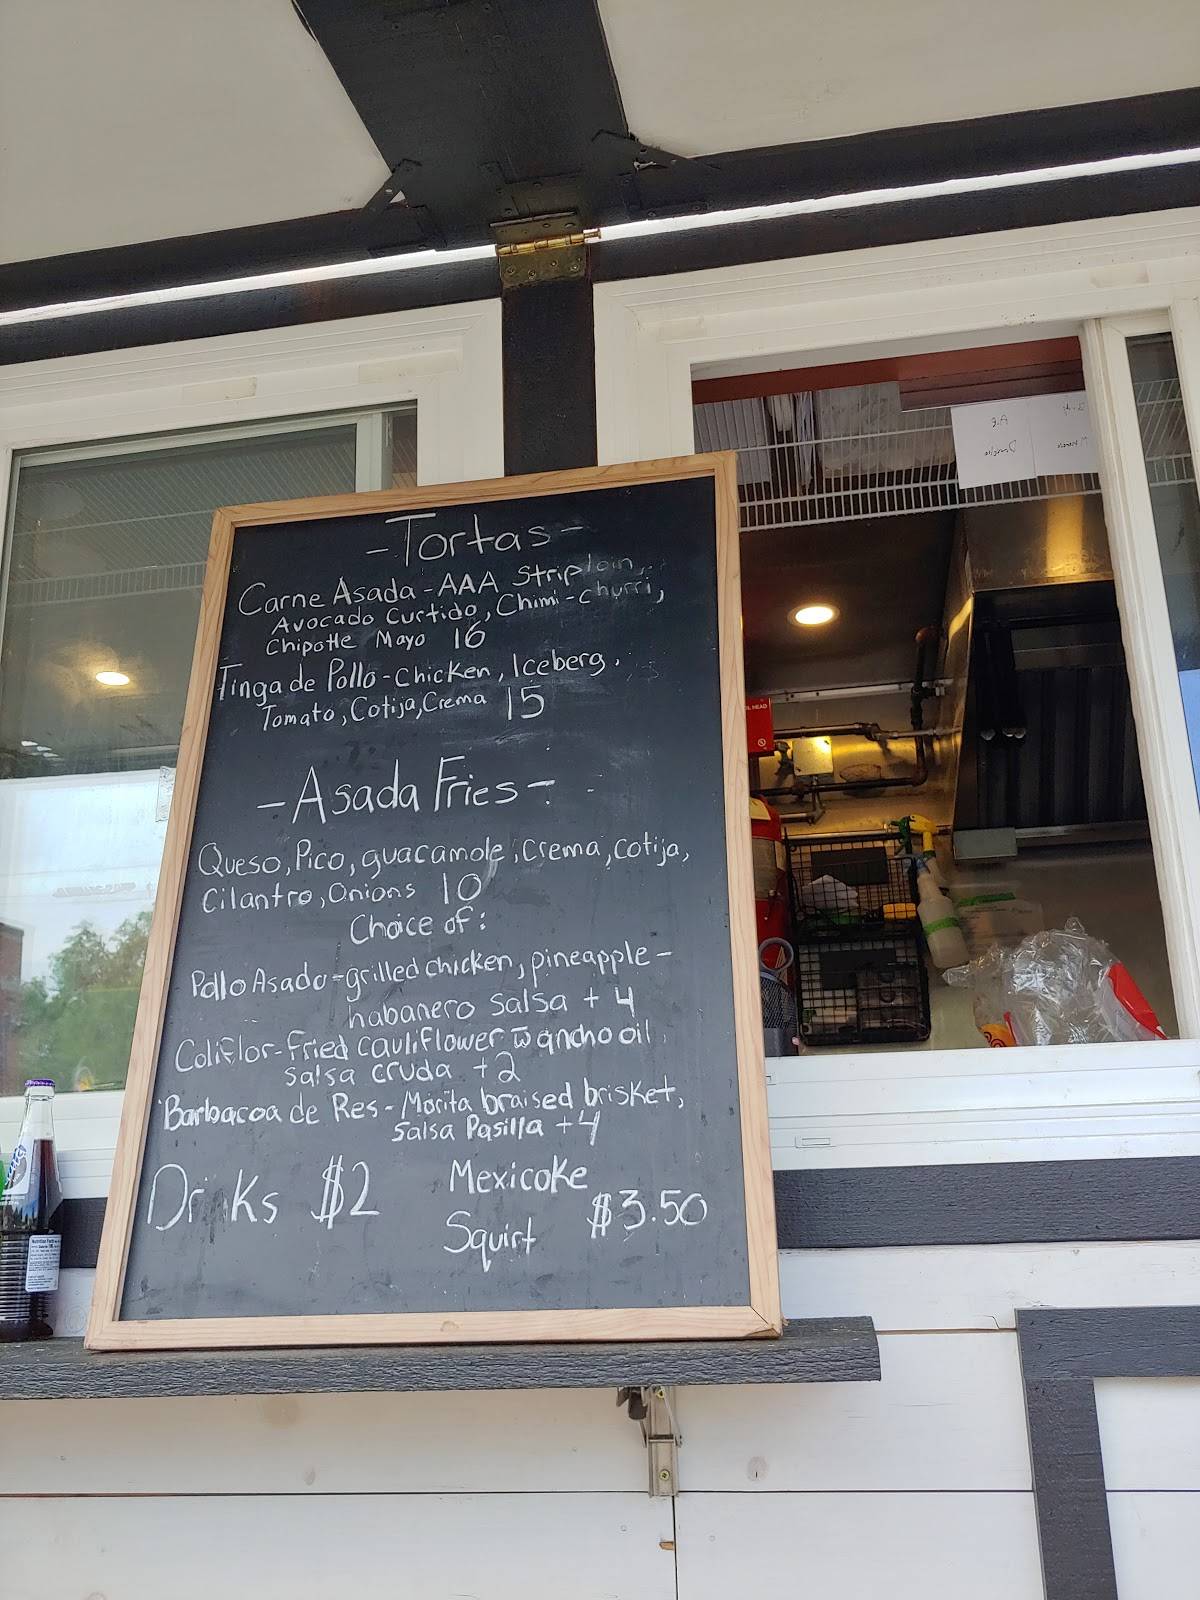 - Tortas -
Carne Asada - AAA Striploin,
Avocado Curtido, Chimi-churri,
Chipotle Mayo 16
Tinga de Pollo - Chicken, Iceberg,
Tomato, Cotija, Crema 15
- Asada Fries -
Queso, Pico, guacamole, Crema, cotija,
Cilantro, Onions 10
Choice of:
Pollo Asado - grilled chicken, pineapple -
habanero salsa + 4
Coliflor - Fried cauliflower w ancho oil
salsa cruda + 2
Barbacoa de Res - Morita braised brisket,
Salsa Pasilla + 4
Drinks $2
Mexicoke
Squirt $3.50
Nutrition Facts